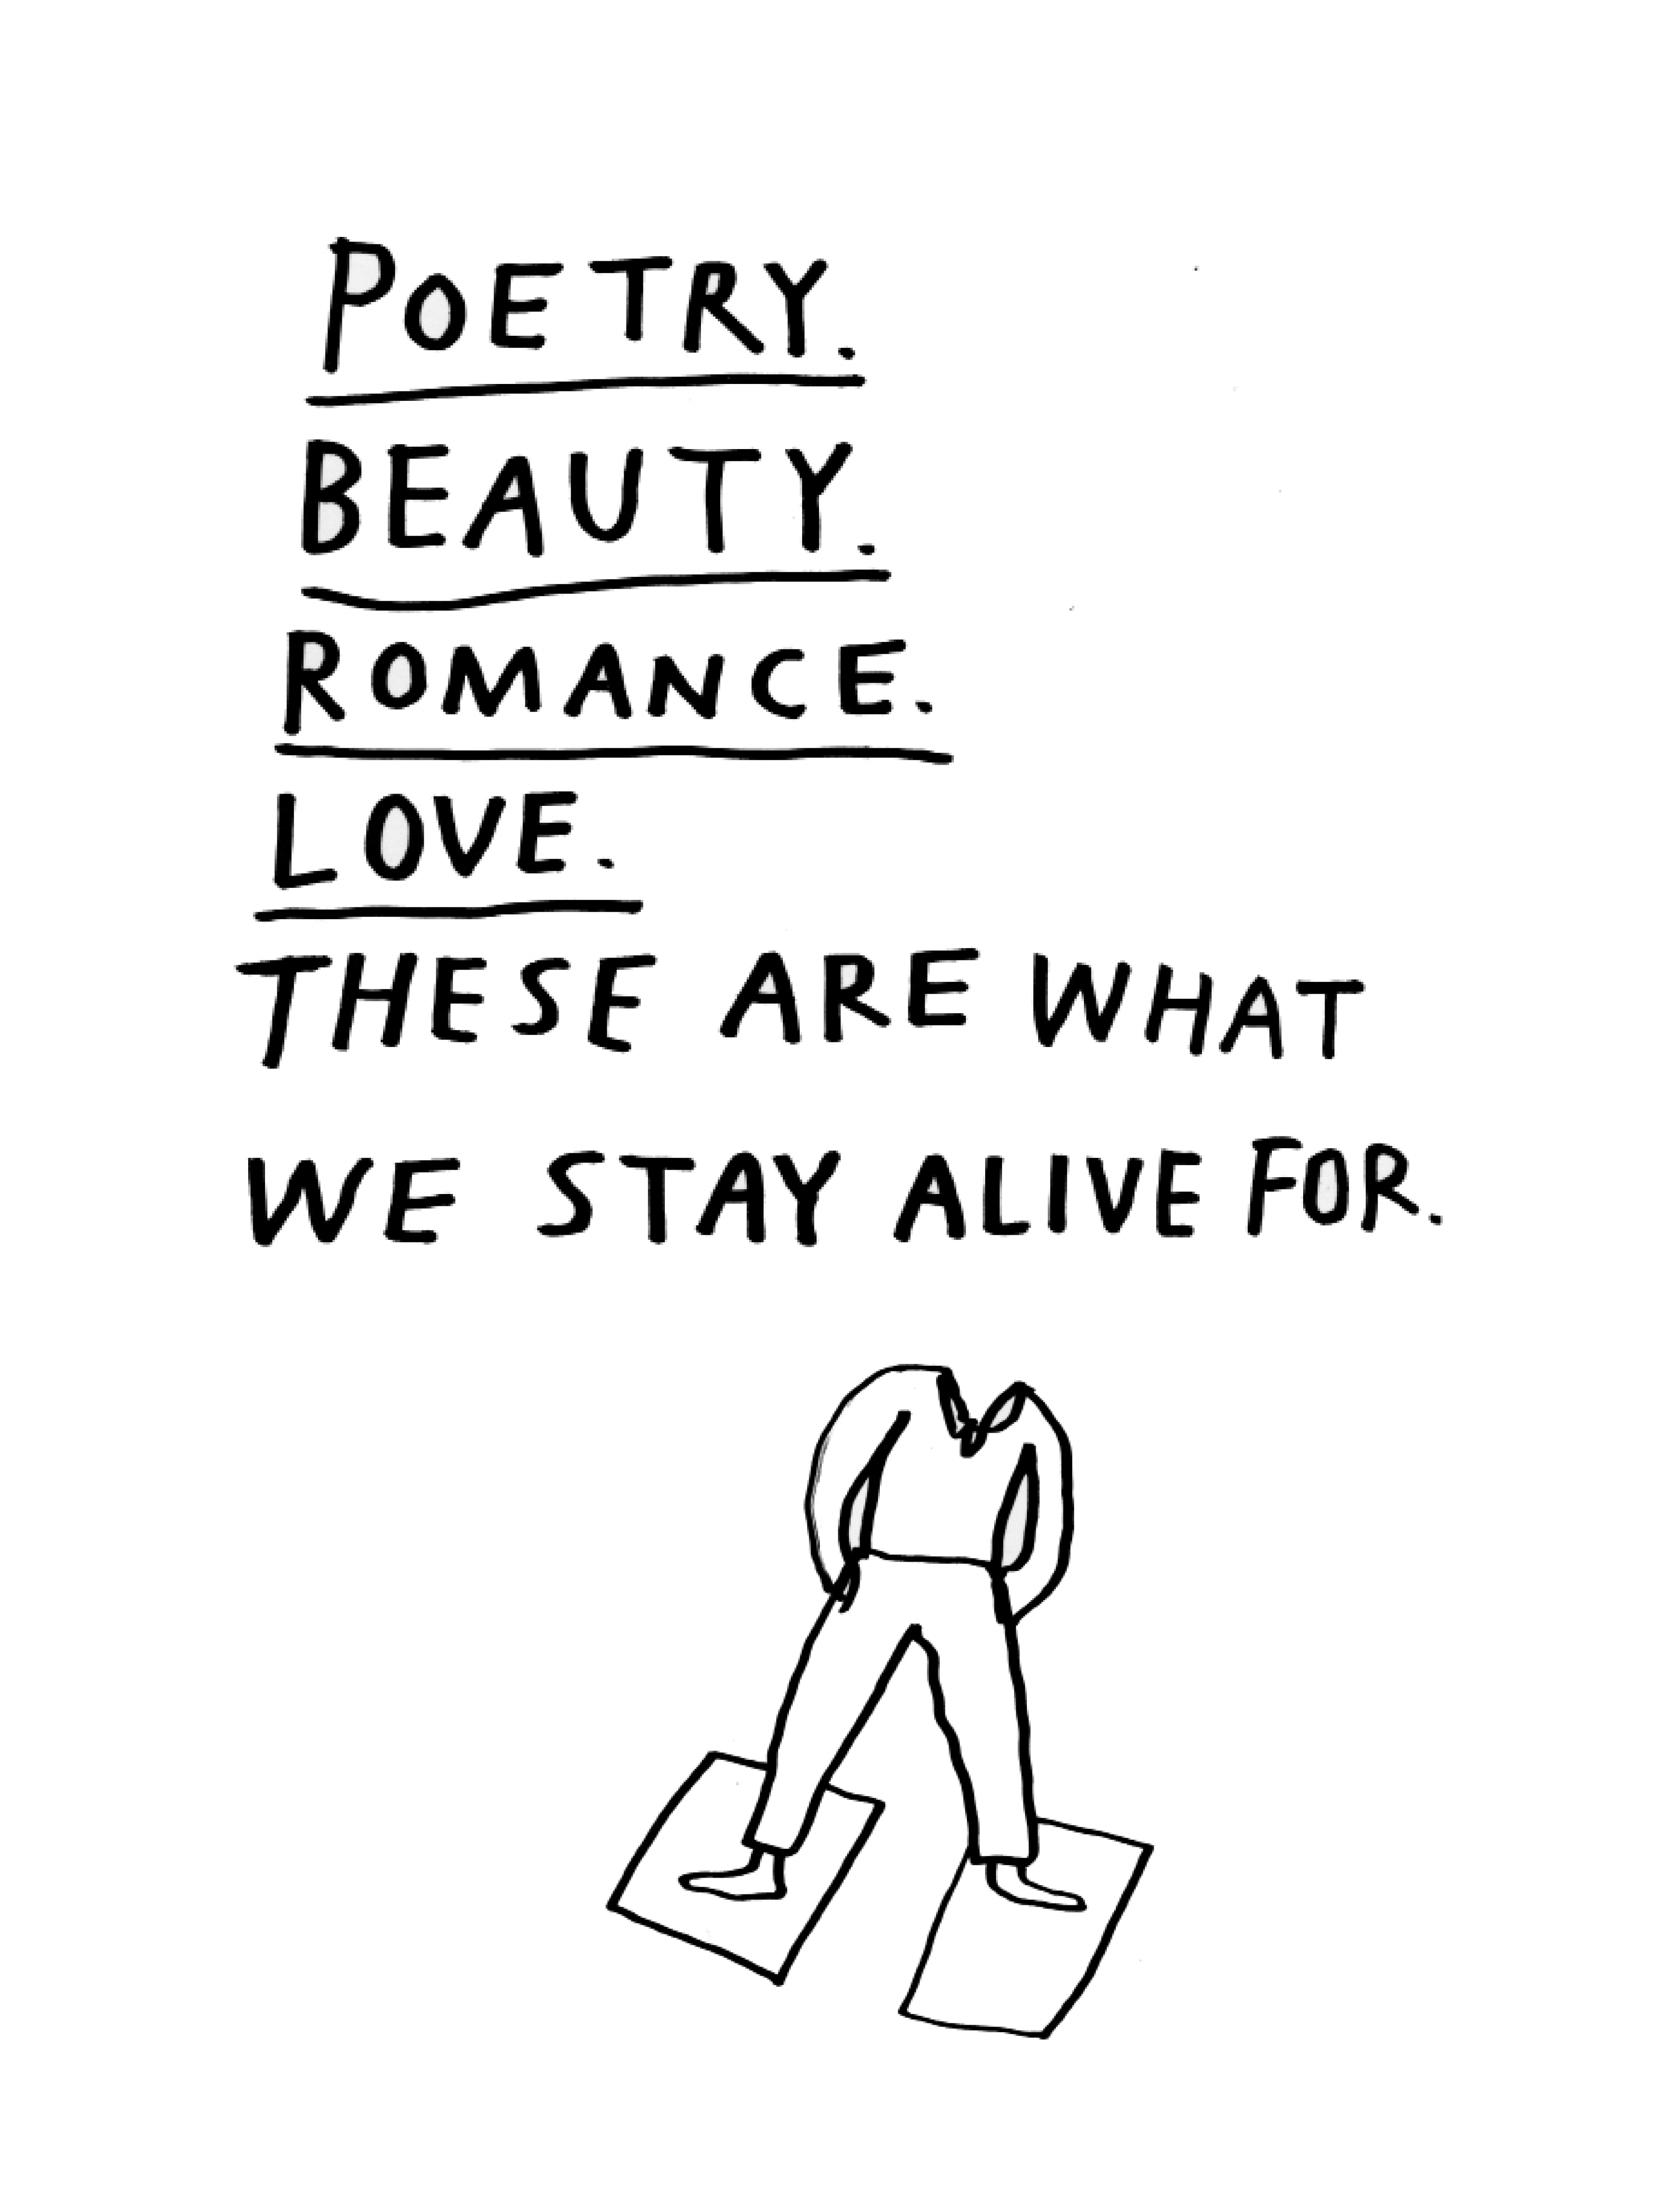 POETRY.
BEAUTY.
ROMANCE.
LOVE.
THESE ARE WHAT
WE STAY ALIVE FOR.